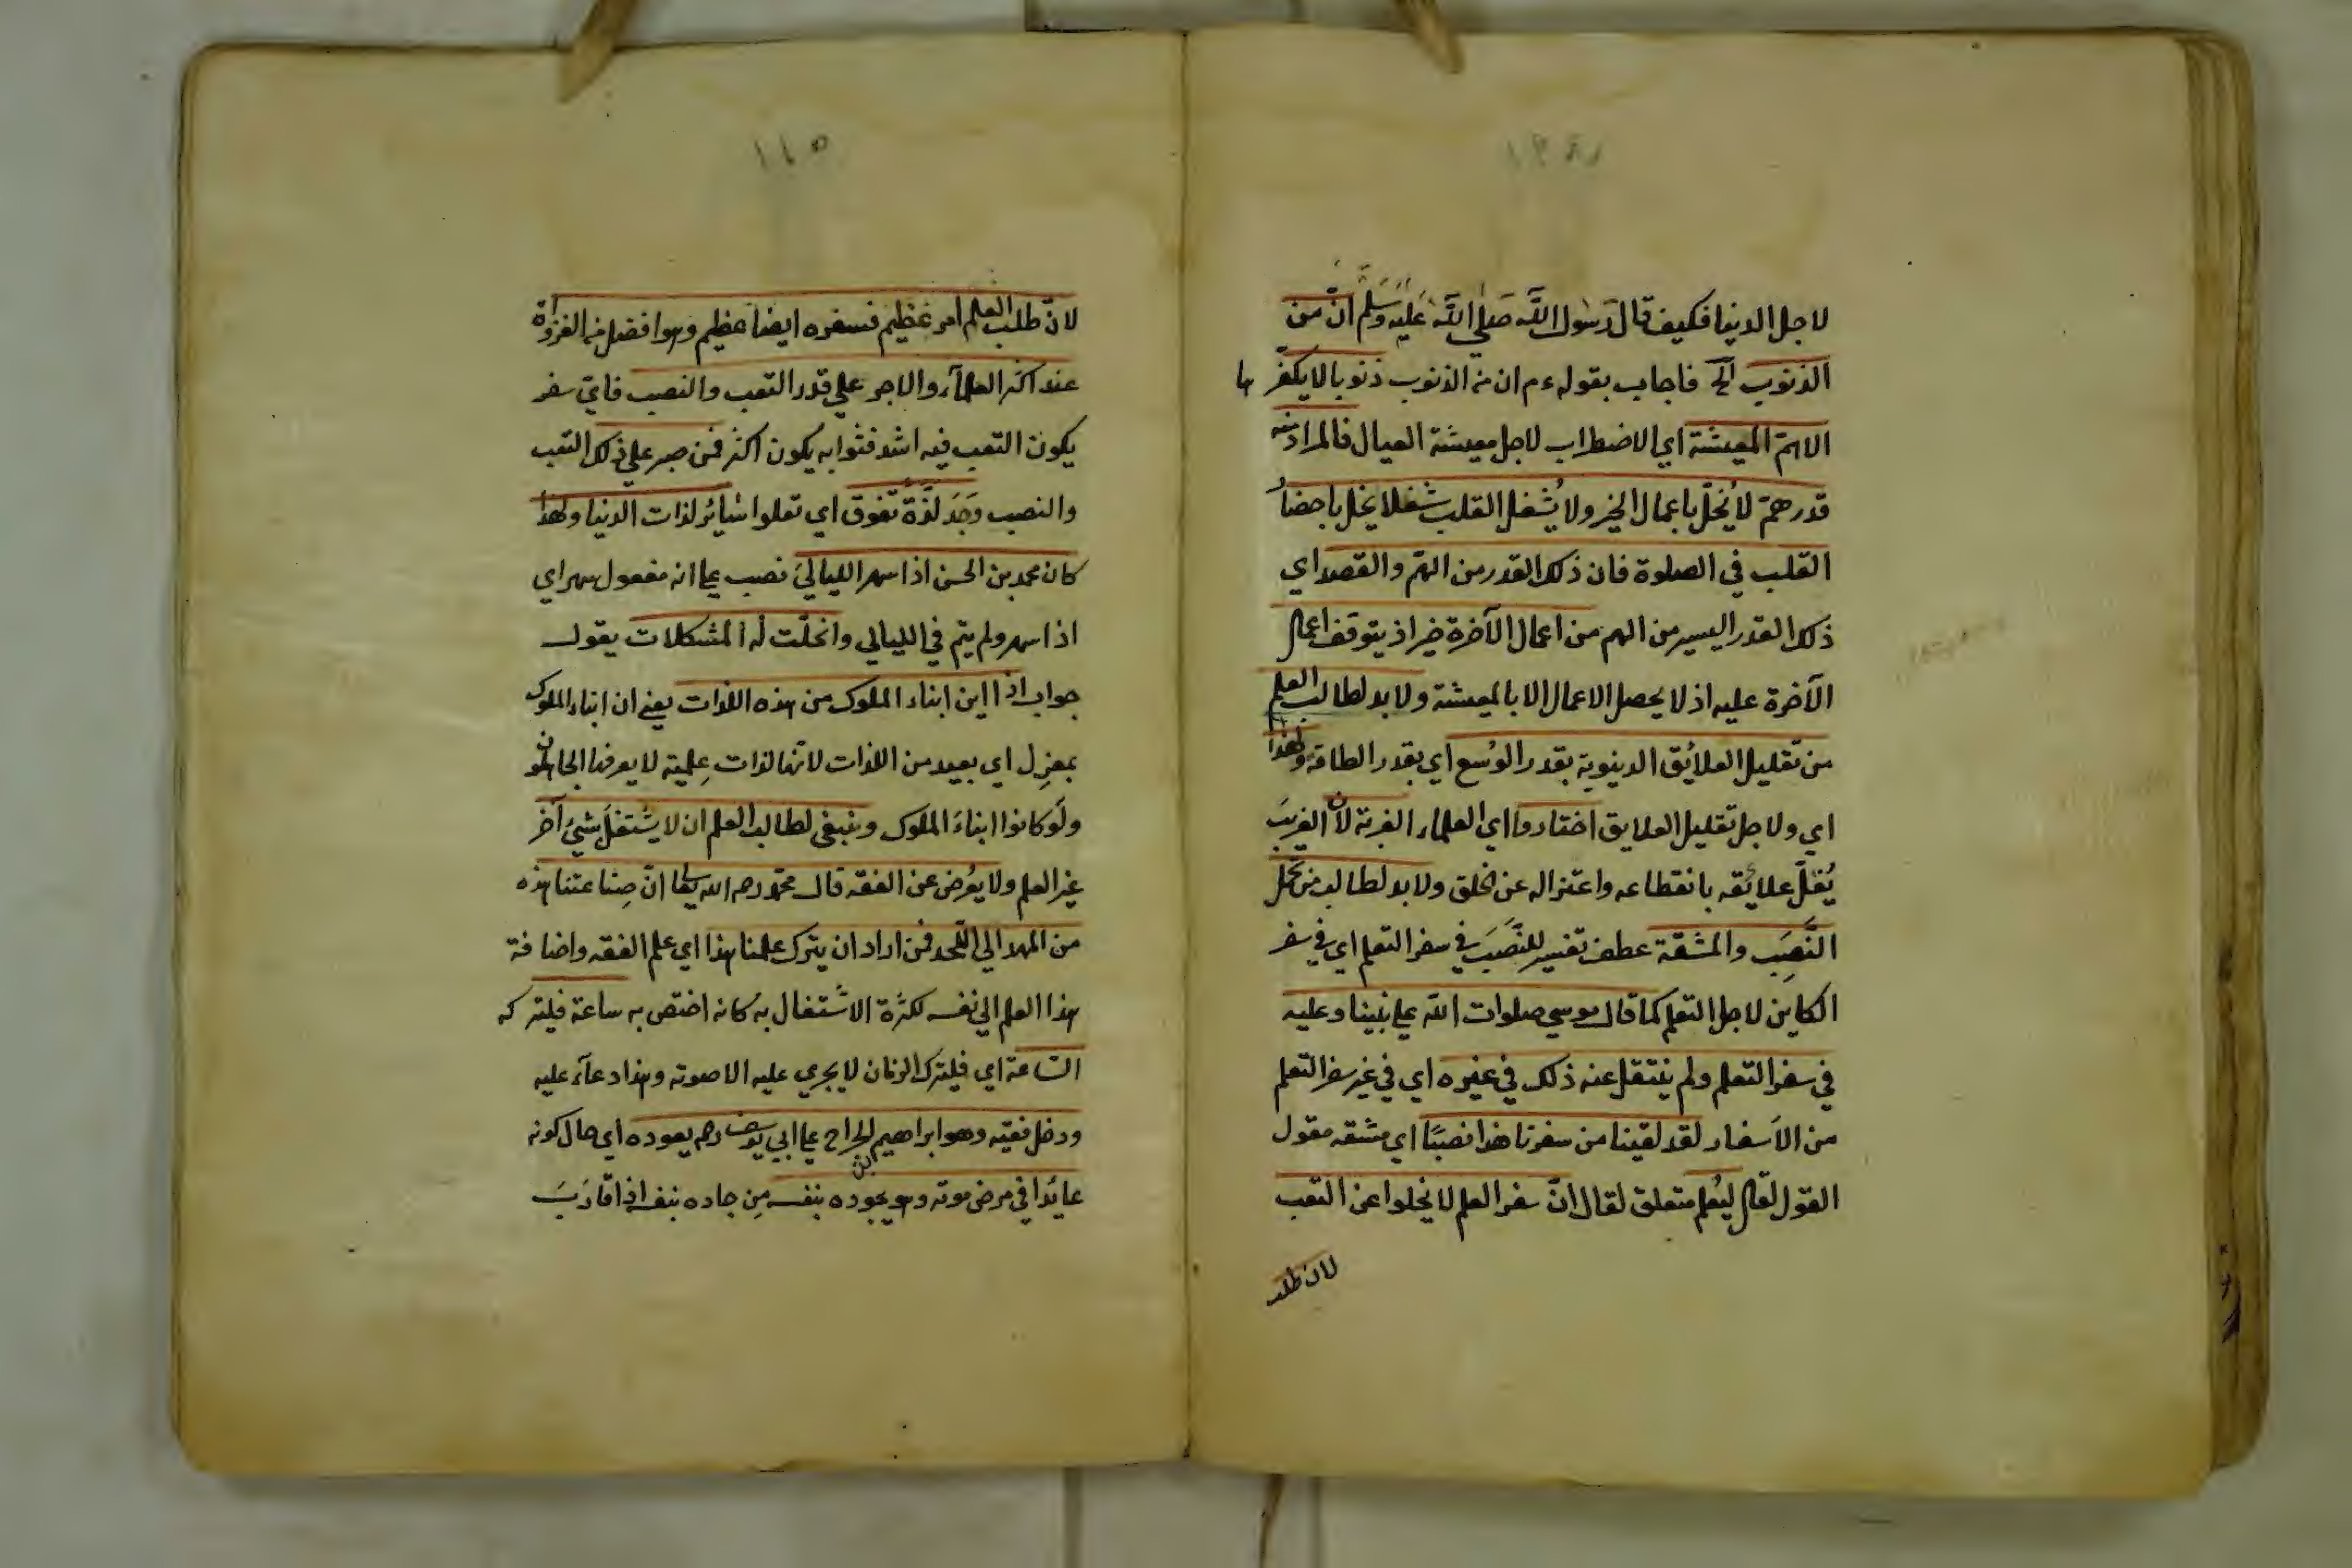 لاجل الدنيا فكيف قال رسول الله صلى الله عليه وسلم ان من
الذنوب الخ فاجاب بقوله ءم ان من الذنوب ذنوبا لا يكفرها
الا هم المعيشة اي الاضطراب لاجل معيشة العيال فالمراد منه
قدر هم لا يُخل باعمال الخير ولا يُشغل القلب شغلا يخل باحضار
القلب في الصلوة فان ذلك القدر من الهم والقصد اي
ذلك القدر اليسير من الهم من اعمال الآخرة خير اذ يتوقف اعمال
الآخرة عليه اذ لا يحصل الاعمال الا بالمعيشة ولا بد لطالب العلم
من تقليل العلائق الدنيوية بقدر الوُسع اي بقدر الطاقة ولهذا
اي ولاجل تقليل العلايق اختاروا اي العلماء الغربة لان الغريب
يُقلّ علائقه بانقطاعه واعتزاله عن الخلق ولا بد لطالب من تحمل
النَّصَب والمشقة عطف تفسير للنَّصَب في سفر التعلم اي في سفر
الكاين لاجل التعلم كما قال موسي صلوات الله علي نبينا وعليه
في سفر التعلم ولم ينتقل عنه ذلك في غيره اي في غير سفر التعلم
من الاَسفار لقد لقينا من سفرنا هذا نصبًا اي مشقه مقول
القول لقال ليُعلم متعلق لقال انّ سفر العلم لا يخلوا عن التعب
لان طلب
١١٥
لانّ طلب العلم امر عظيم فسفره ايضا عظيم وهو افضل من الغزاوة
عند اكثر العلمآء والاجر علي قدر التعب والنصب فايّ سفر
يكون التعب فيه اشد فثوابه يكون اكثر فمن صبر علي ذلك التعب
والنصب وَجَدَ لذّة تفوق اي تعلوا سائر لذات الدنيا ولهذا
كان محمد بن الحسن اذا سهر الليالي نصب علي انه مفعول سهر اي
اذا سهر ولم ينم في الليالي وانحلّت له المشكلات يقول
جواب اذا اين ابناء الملوك من هذه اللذات يعني ان ابناء الملوك
بمعزل اي بعيد من اللذات لانها لذات عِلمية لا يعرفها الجاهلون
ولَو كانوا ابناءَ الملوك وينبغي لطالب العلم ان لا يشتغل بشيئ آخر
غير العلم ولا يعُرض عن الفقه قال محمّد رحمه الله تعالى انّ صِناعتنا هذه
من المهد الي اللّحد فمن اراد ان يترك علمنا هذا اي علم الفقه واضافة
هذا العلم الي نفسه لكثرة الاشتغال به كانه اختص به ساعة فليتركه
الساعة اي فليترك الزمان لا يجري عليه الا صوته وهذا دعآء عليه
ودخل فقيه وهو ابراهيم ابن الجراح علي ابي يوسف رحم يعوده اي حال كونه
عائدا في مرض موته وهو يجود بنفسه مِن جاد بنفسه اذا قارَبَ